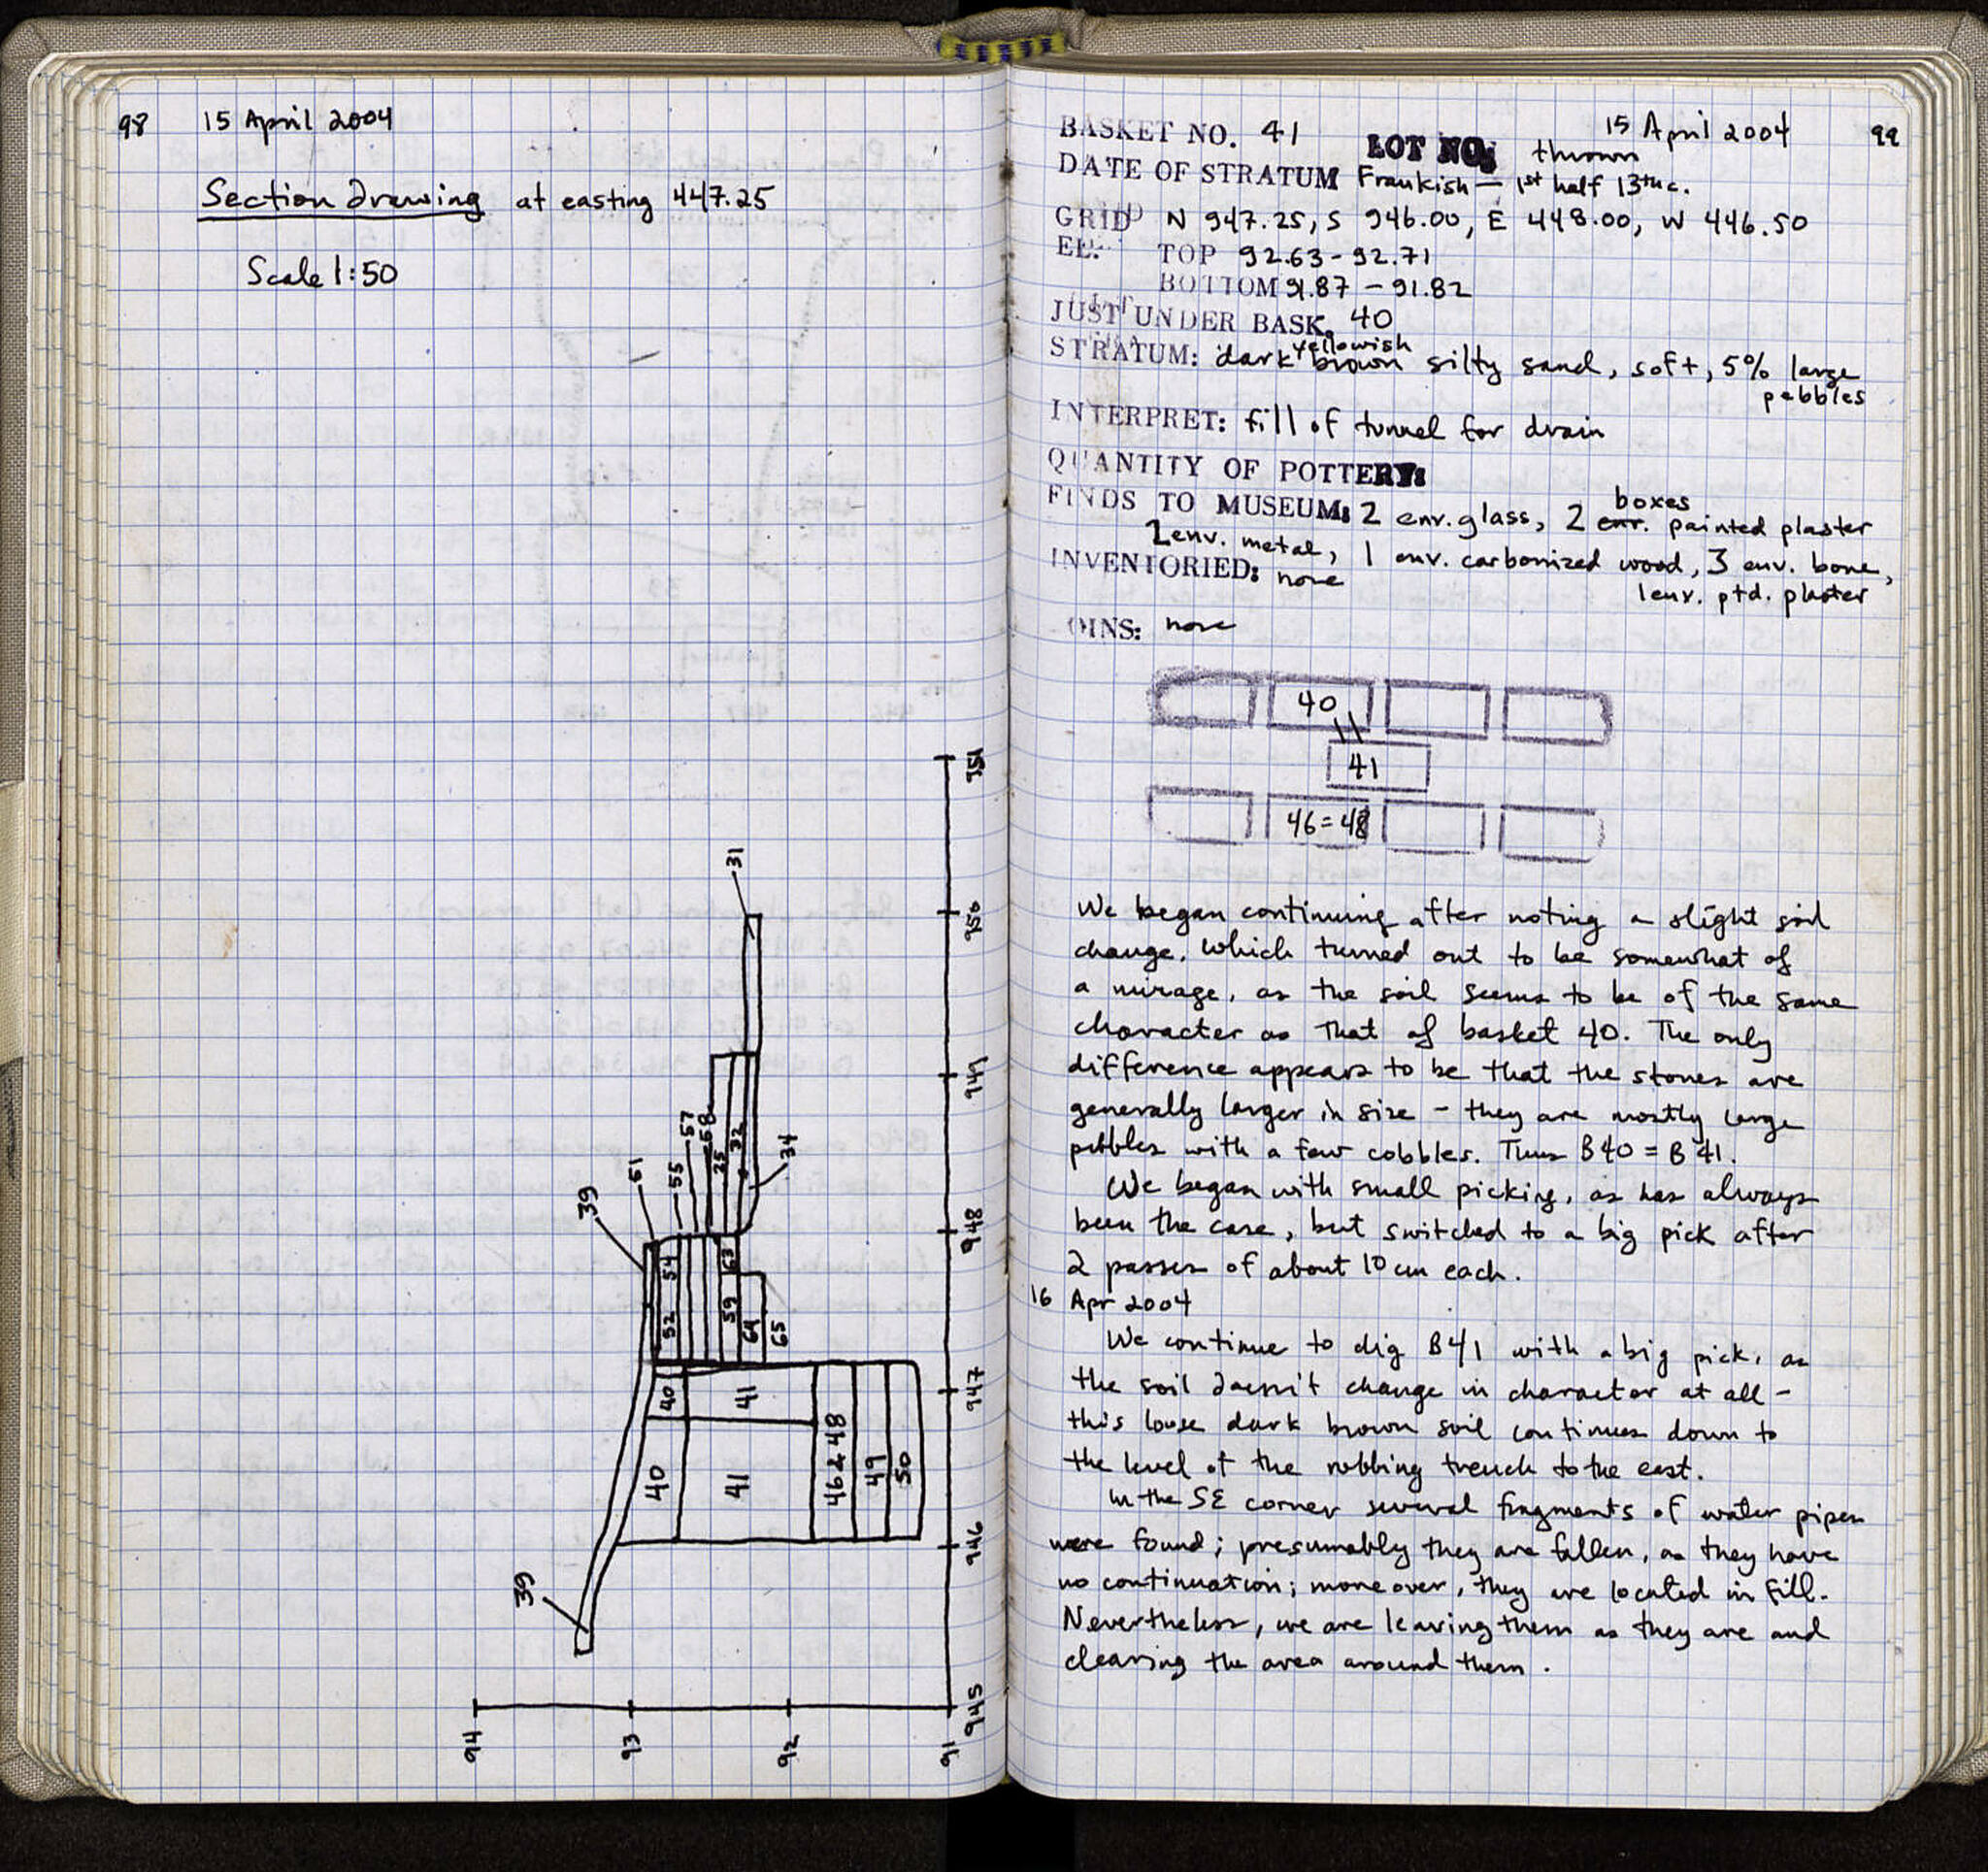 98 15 April 2004
Section Drawing at easting 447.25
Scale 1:50
951
31
950
949
57
58
32
35
34
55
61
39
948
54
63
52
59
64
65
947
40
41
40
41
46 & 48
49
50
946
39
945
94
93
92
91
15 April 2004 99
BASKET NO. 41
LOT NO: thrown
DATE OF STRATUM Frankish – 1st half 13th c.
GRID N 947.25, S 946.00, E 448.00, W 446.50
EL. TOP 92.63 - 92.71
BOTTOM 91.87 - 91.82
JUST UNDER BASK. 40
STRATUM: dark yellowish brown silty sand, soft, 5% large
pebbles
INTERPRET: fill of tunnel for drain
QUANTITY OF POTTERY:
FINDS TO MUSEUM: 2 env. glass, 2 env. boxes painted plaster
1 env. metal, 1 env. carbonized wood, 3 env. bone,
1 env. ptd. plaster
INVENTORIED: none
OINS: none
40
41
46=48
We began continuing after noting a slight soil
change, which turned out to be somewhat of
a mirage, as the soil seems to be of the same
character as that of basket 40. The only
difference appears to be that the stones are
generally larger in size – they are mostly large
pebbles with a few cobbles. Thus B40 = B41.
We began with small picking, as has always
been the case, but switched to a big pick after
2 passes of about 10 cm each.
16 Apr 2004
We continue to dig B41 with a big pick, as
the soil doesn't change in character at all –
this loose dark brown soil continues down to
the level of the robbing trench to the east.
In the SE corner several fragments of water pipes
were found; presumably they are fallen, as they have
no continuation; moreover, they are located in fill.
Nevertheless, we are leaving them as they are and
cleaning the area around them.